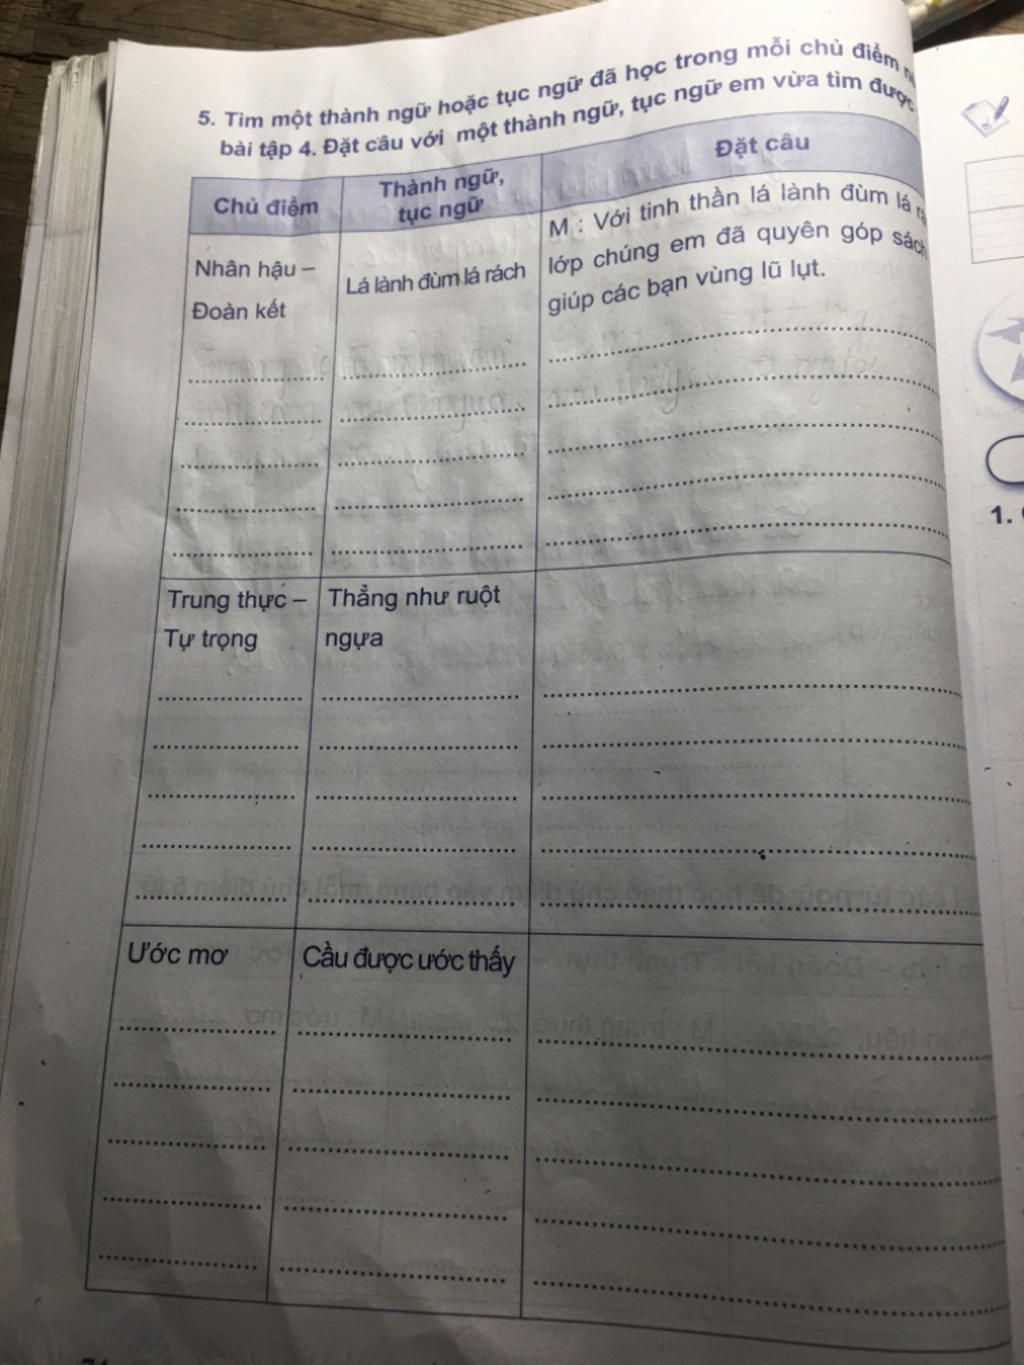 5. Tìm một thành ngữ hoặc tục ngữ đã học trong mỗi chủ điểm
bài tập 4. Đặt câu với một thành ngữ, tục ngữ em vừa tìm được
Chủ điểm
Thành ngữ,
tục ngữ
Đặt câu
Nhân hậu –
Đoàn kết
Lá lành đùm lá rách
M : Với tinh thần lá lành đùm lá
lớp chúng em đã quyên góp sách
giúp các bạn vùng lũ lụt.
Trung thực –
Tự trọng
Thẳng như ruột
ngựa
Ước mơ
Cầu được ước thấy
1.